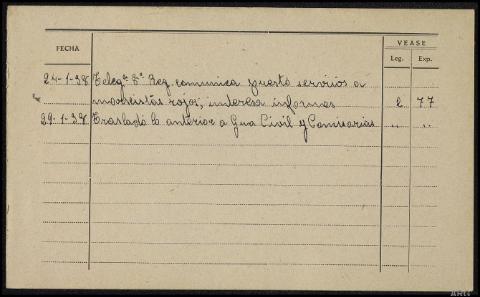 FECHA
VEASE
Leg. Exp.
24-1-38 Telegª 8ª Reg. comunica puesto servicios a
rojos, interesa informes 2 77
29-1-38 Traslado lo anterior a Gua Civil y Comisarias " "